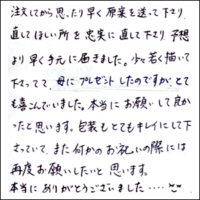 注文してから思ったより早く原案を送って下さり
直してほしい所を忠実に直して下り予想
より早く手元に届きました。少し若く描いて
下さってて、母にプレゼントしたのですが、とて
も喜んでいました。本当にお願いして良か
ったと思います。包装もとてもキレイにして下
さっていて、また何かのお祝いの際には
再度お願いしたいと思います。
本当にありがとうございました....